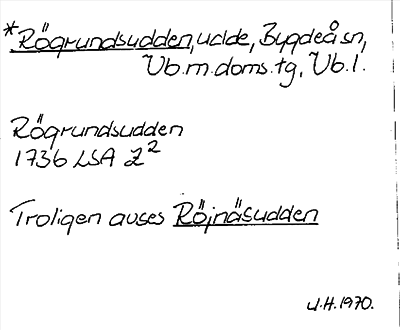 *Rögrundsudden, udde, Bygdeå sn,
Vb. m. doms. tg, Vb. l.
Rögrundsudden
1736 LSA Z²
Troligen avses Röjnäsudden
J.H. 1970.